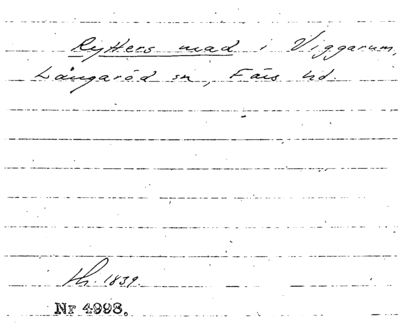 Rytters mad i Viggarum,
Långaröd sn, Färs hd.
1839.
Nr 4998.